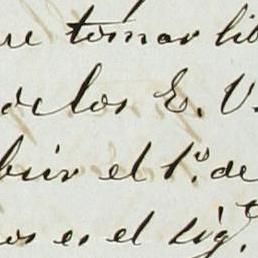 re tomar lib
de los E. U.
bir el 1.º de
os es el sig.te